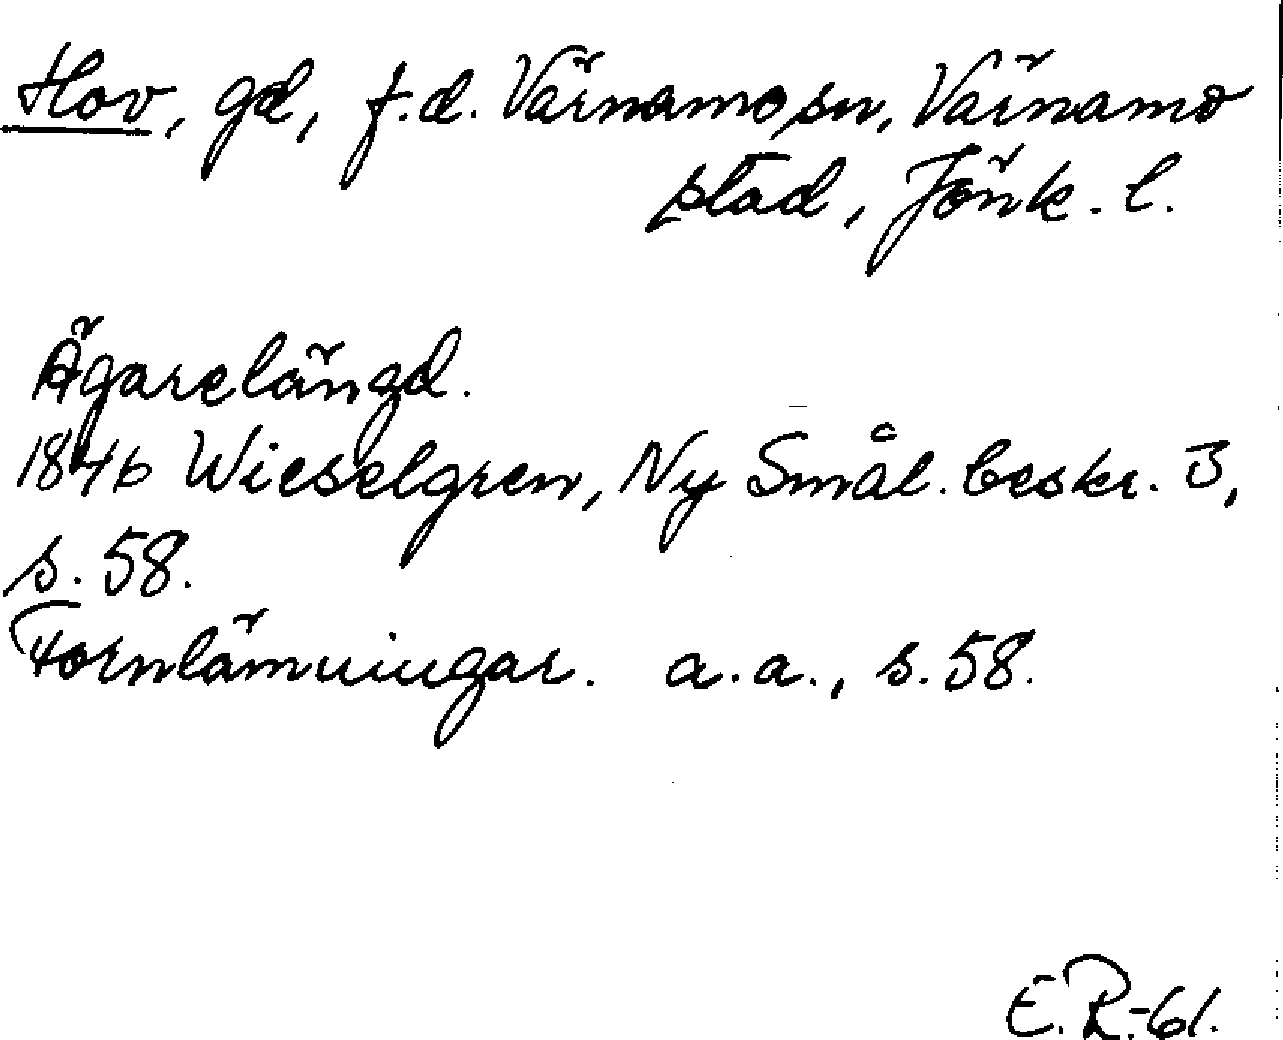 Hov, gd, f.d. Värnamo sn, Värnamo
stad, Jönk. l.
Ägarelängd.
1846 Wieselgren, Ny Smål. beskr. 3,
s. 58.
Fornlämningar. a.a., s. 58.
E.R.-61.